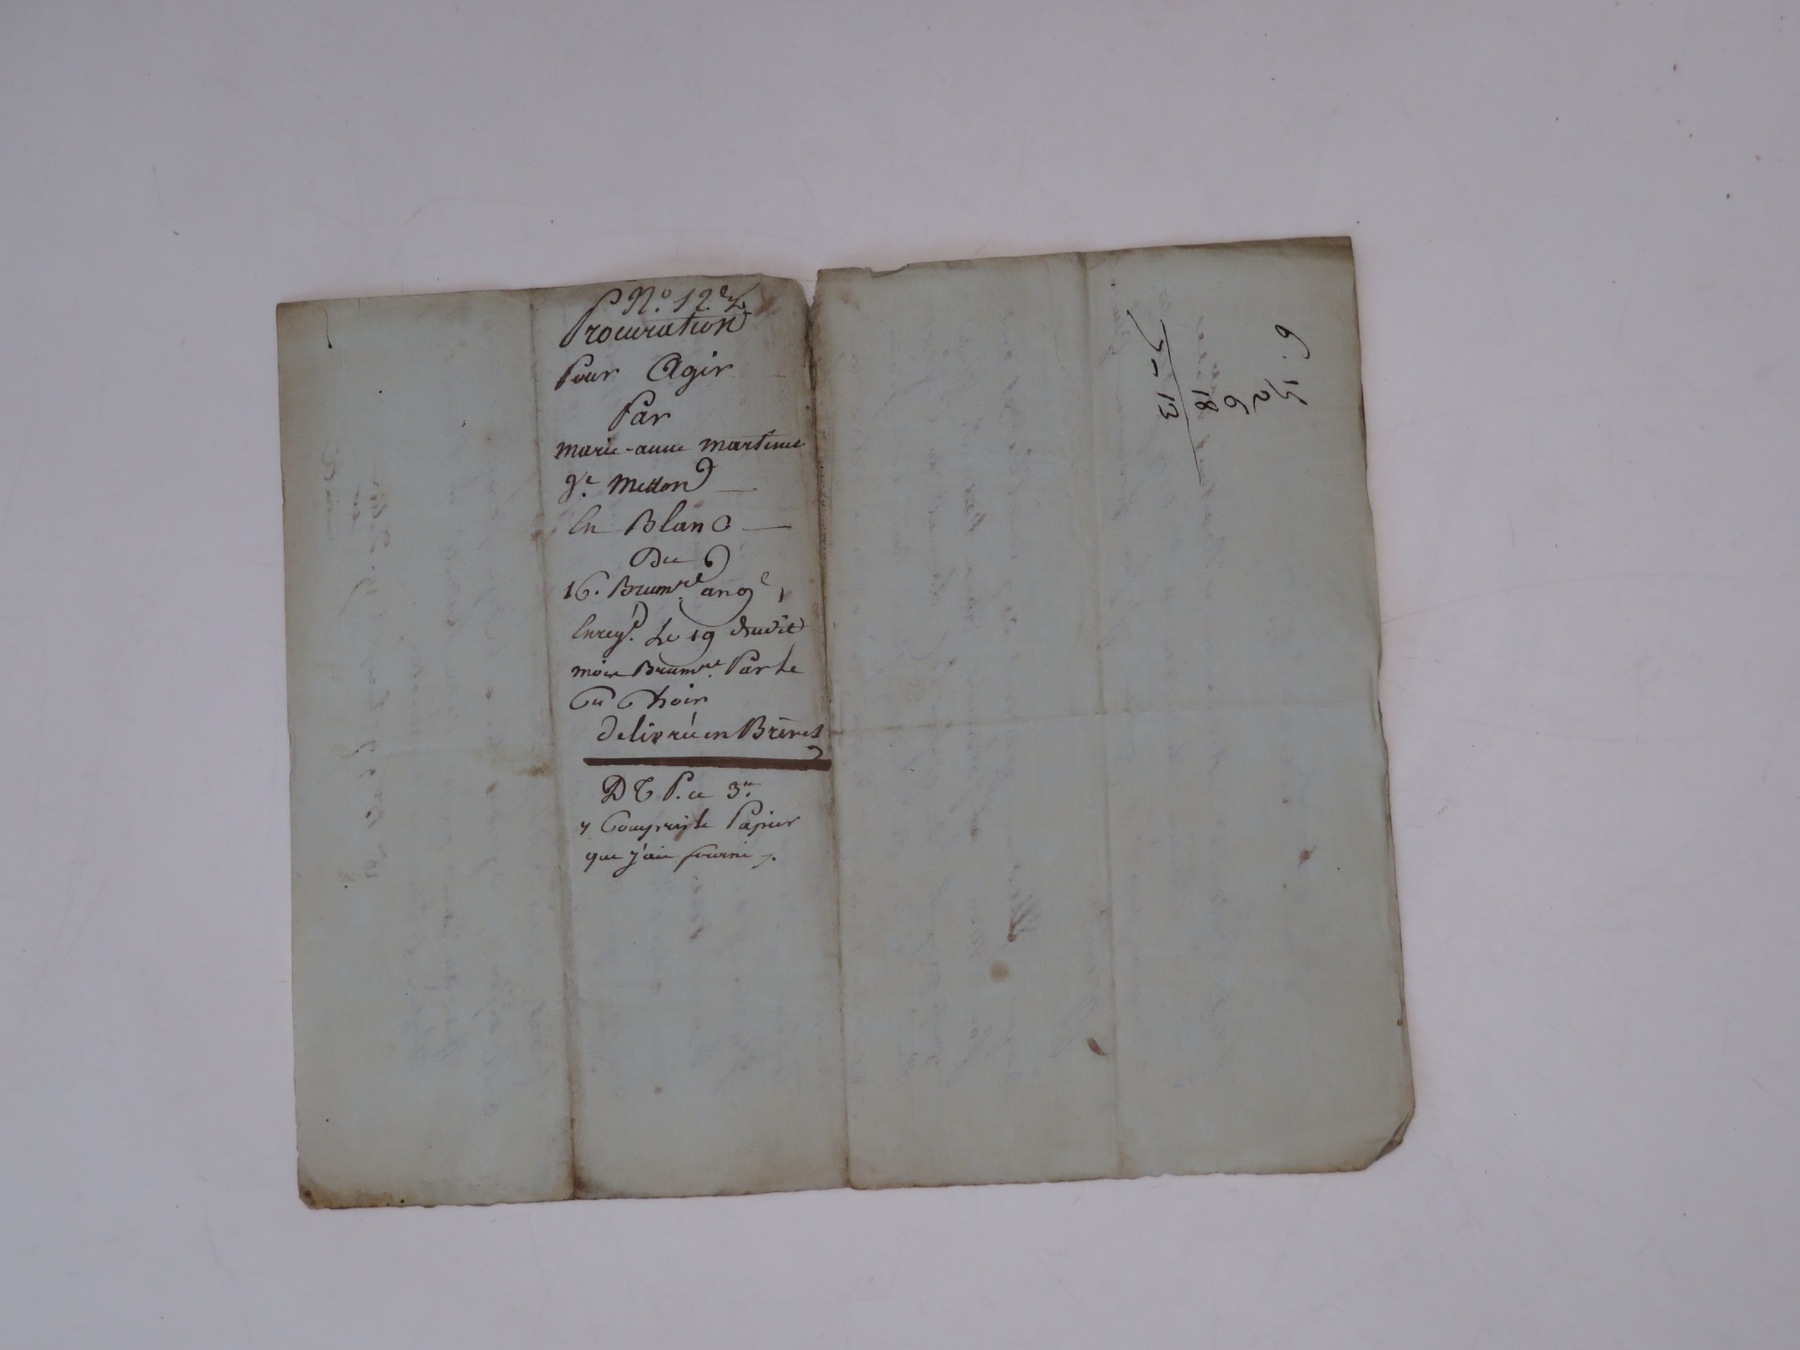 N.º 12.e
Procuration
Pour Agir
Par
marie-anne martine
Ve. Metton
En Blanc
Du
16. Brum.re an 9e
Enreg.t Le 19 dudit
mois Brum.re Par le
Cn Choir
delivré en Brevet
D T P. ce 3tt
y Compris le Papier
que j'ai fourni
6. 15
2
6
18
7 - 13